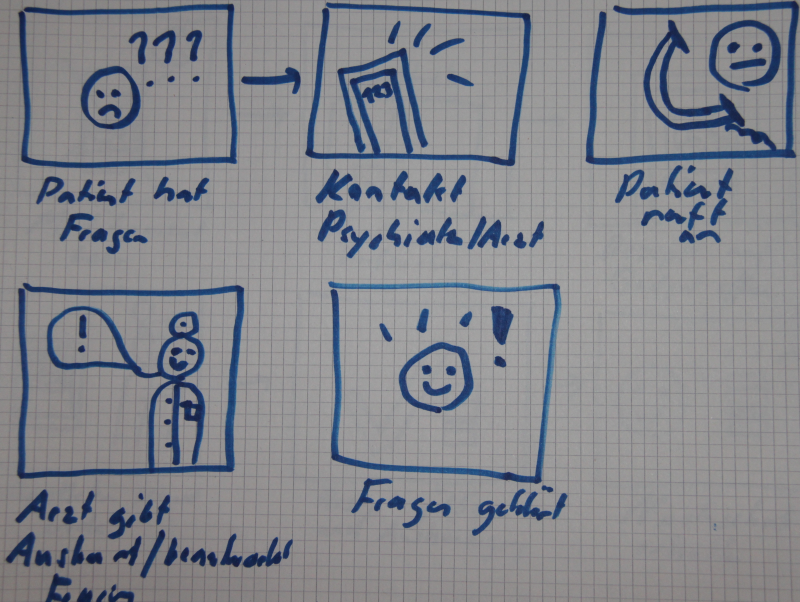 ???
123
Patient hat
Fragen
Kontakt
Psychiater/Arzt
Patient
ruft
an
!
!
Arzt gibt
Auskunft/beantwortet
Fragen
Fragen geklärt